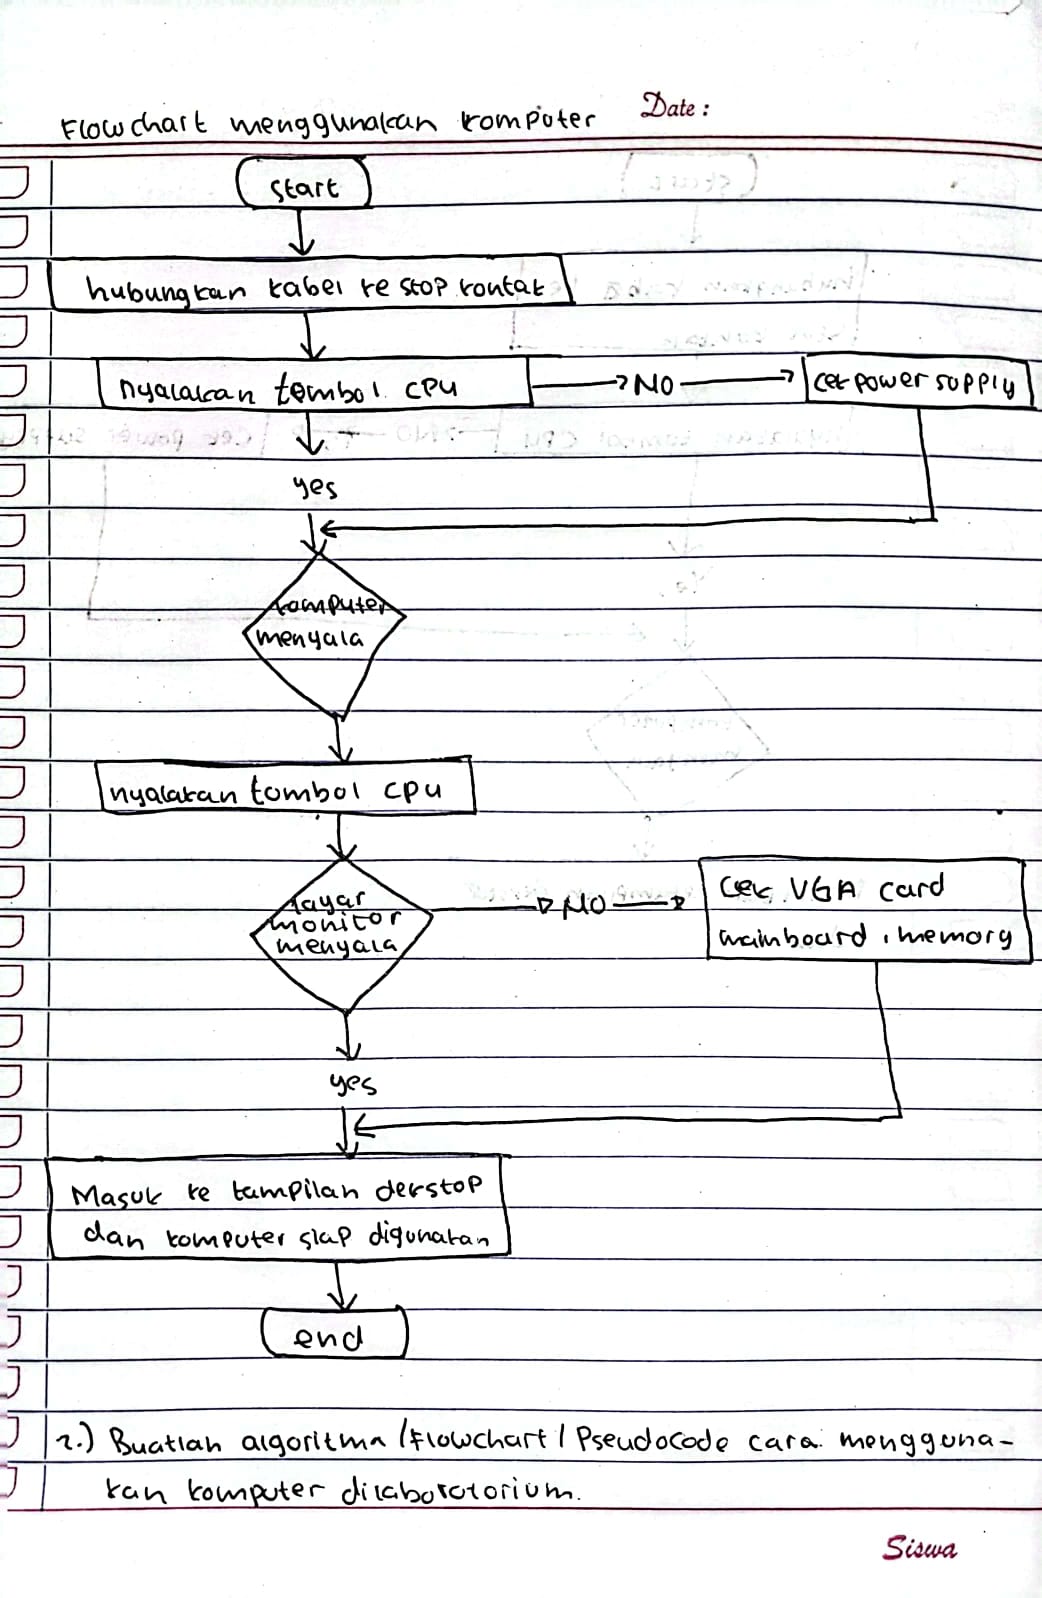 Flowchart menggunakan komputer Date :
start
hubungkan kabel ke stop kontak
nyalakan tombol cpu NO cek power supply
yes
komputer
menyala
nyalakan tombol cpu
layar
monitor
menyala
NO
cek VGA card
mainboard, memory
yes
Masuk ke tampilan dekstop
dan komputer siap digunakan
end
2.) Buatlah algoritma /flowchart / Pseudocode cara mengguna-
kan komputer dilaboratorium.
Siswa